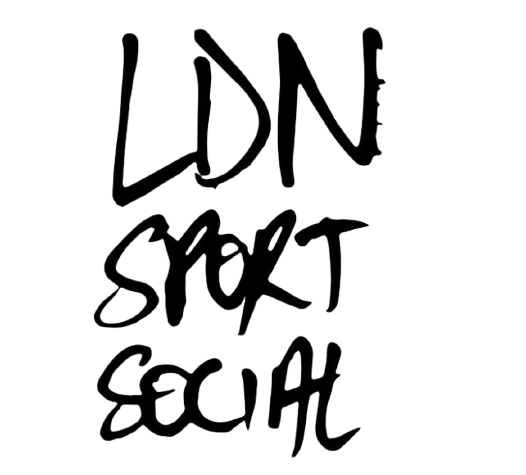 LDN
SPORT
SOCIAL